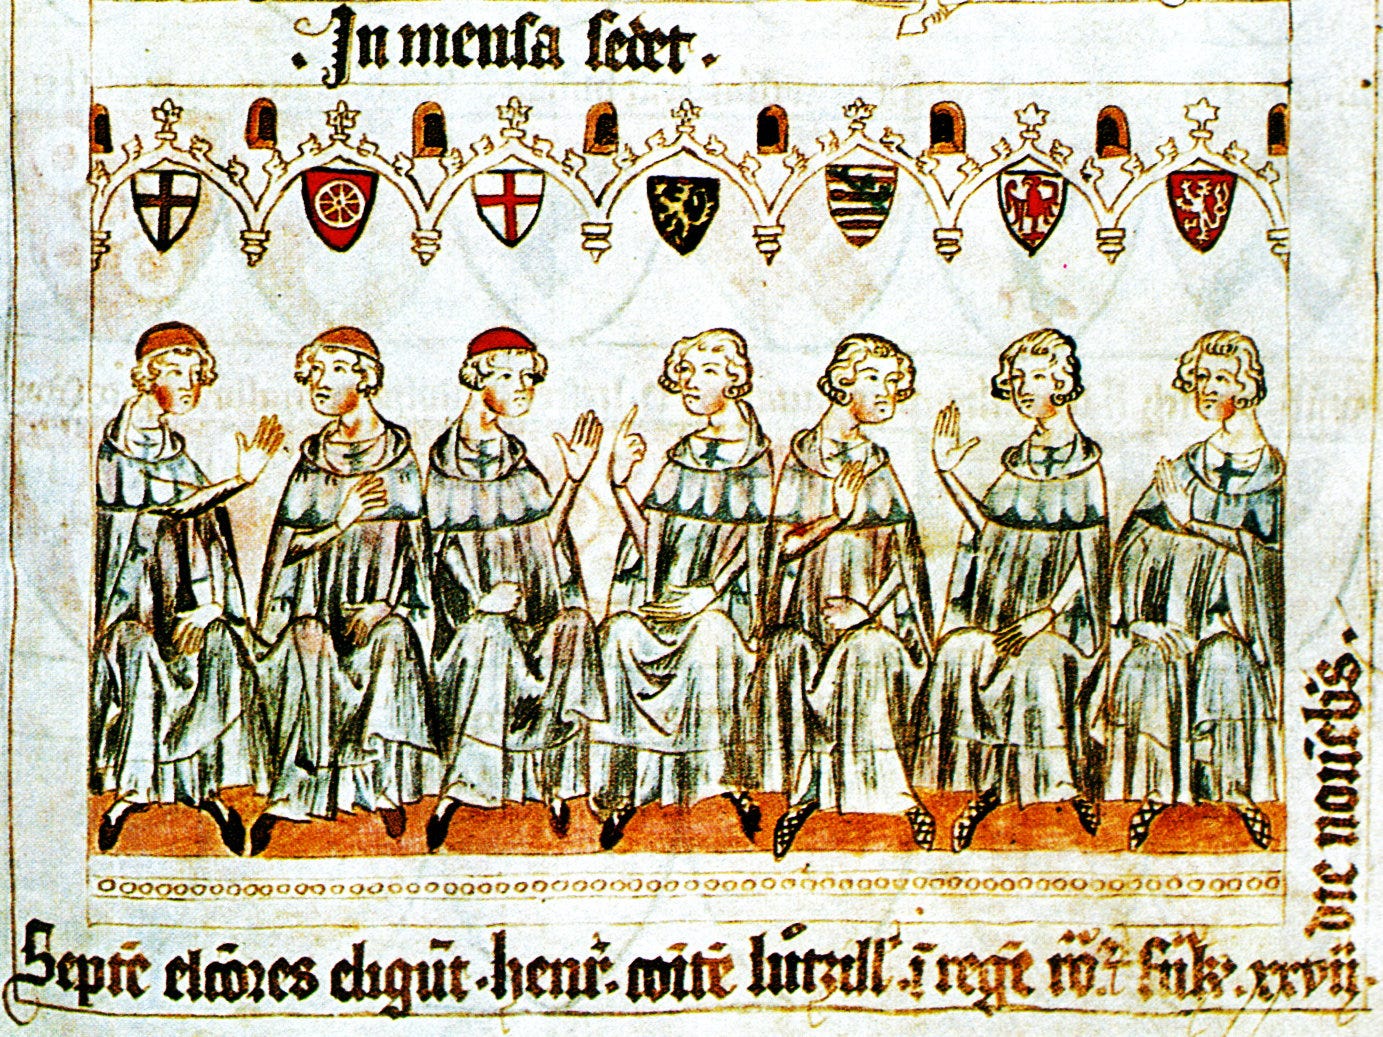 · In mensa sedet ·
Septē elcōres eligūt · henr̄ · comitē lutzill̄ · ī regē ro · Frāk · xxvii ·
die nouēbis ·